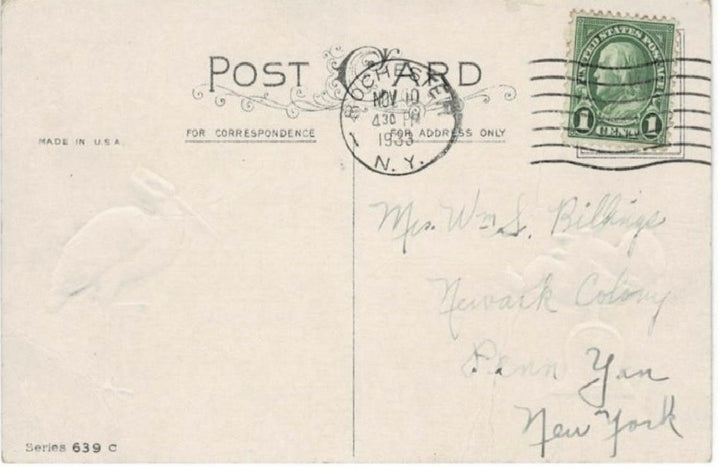 POST CARD
ROCHESTER
NOV 10
430 PM
1933
N.Y.
UNITED STATES POSTAGE
1 CENT 1
MADE IN U.S.A.
FOR CORRESPONDENCE
FOR ADDRESS ONLY
Mrs. Wm S. Billings
Newark Colony
Penn Yan
New York
Series 639 C